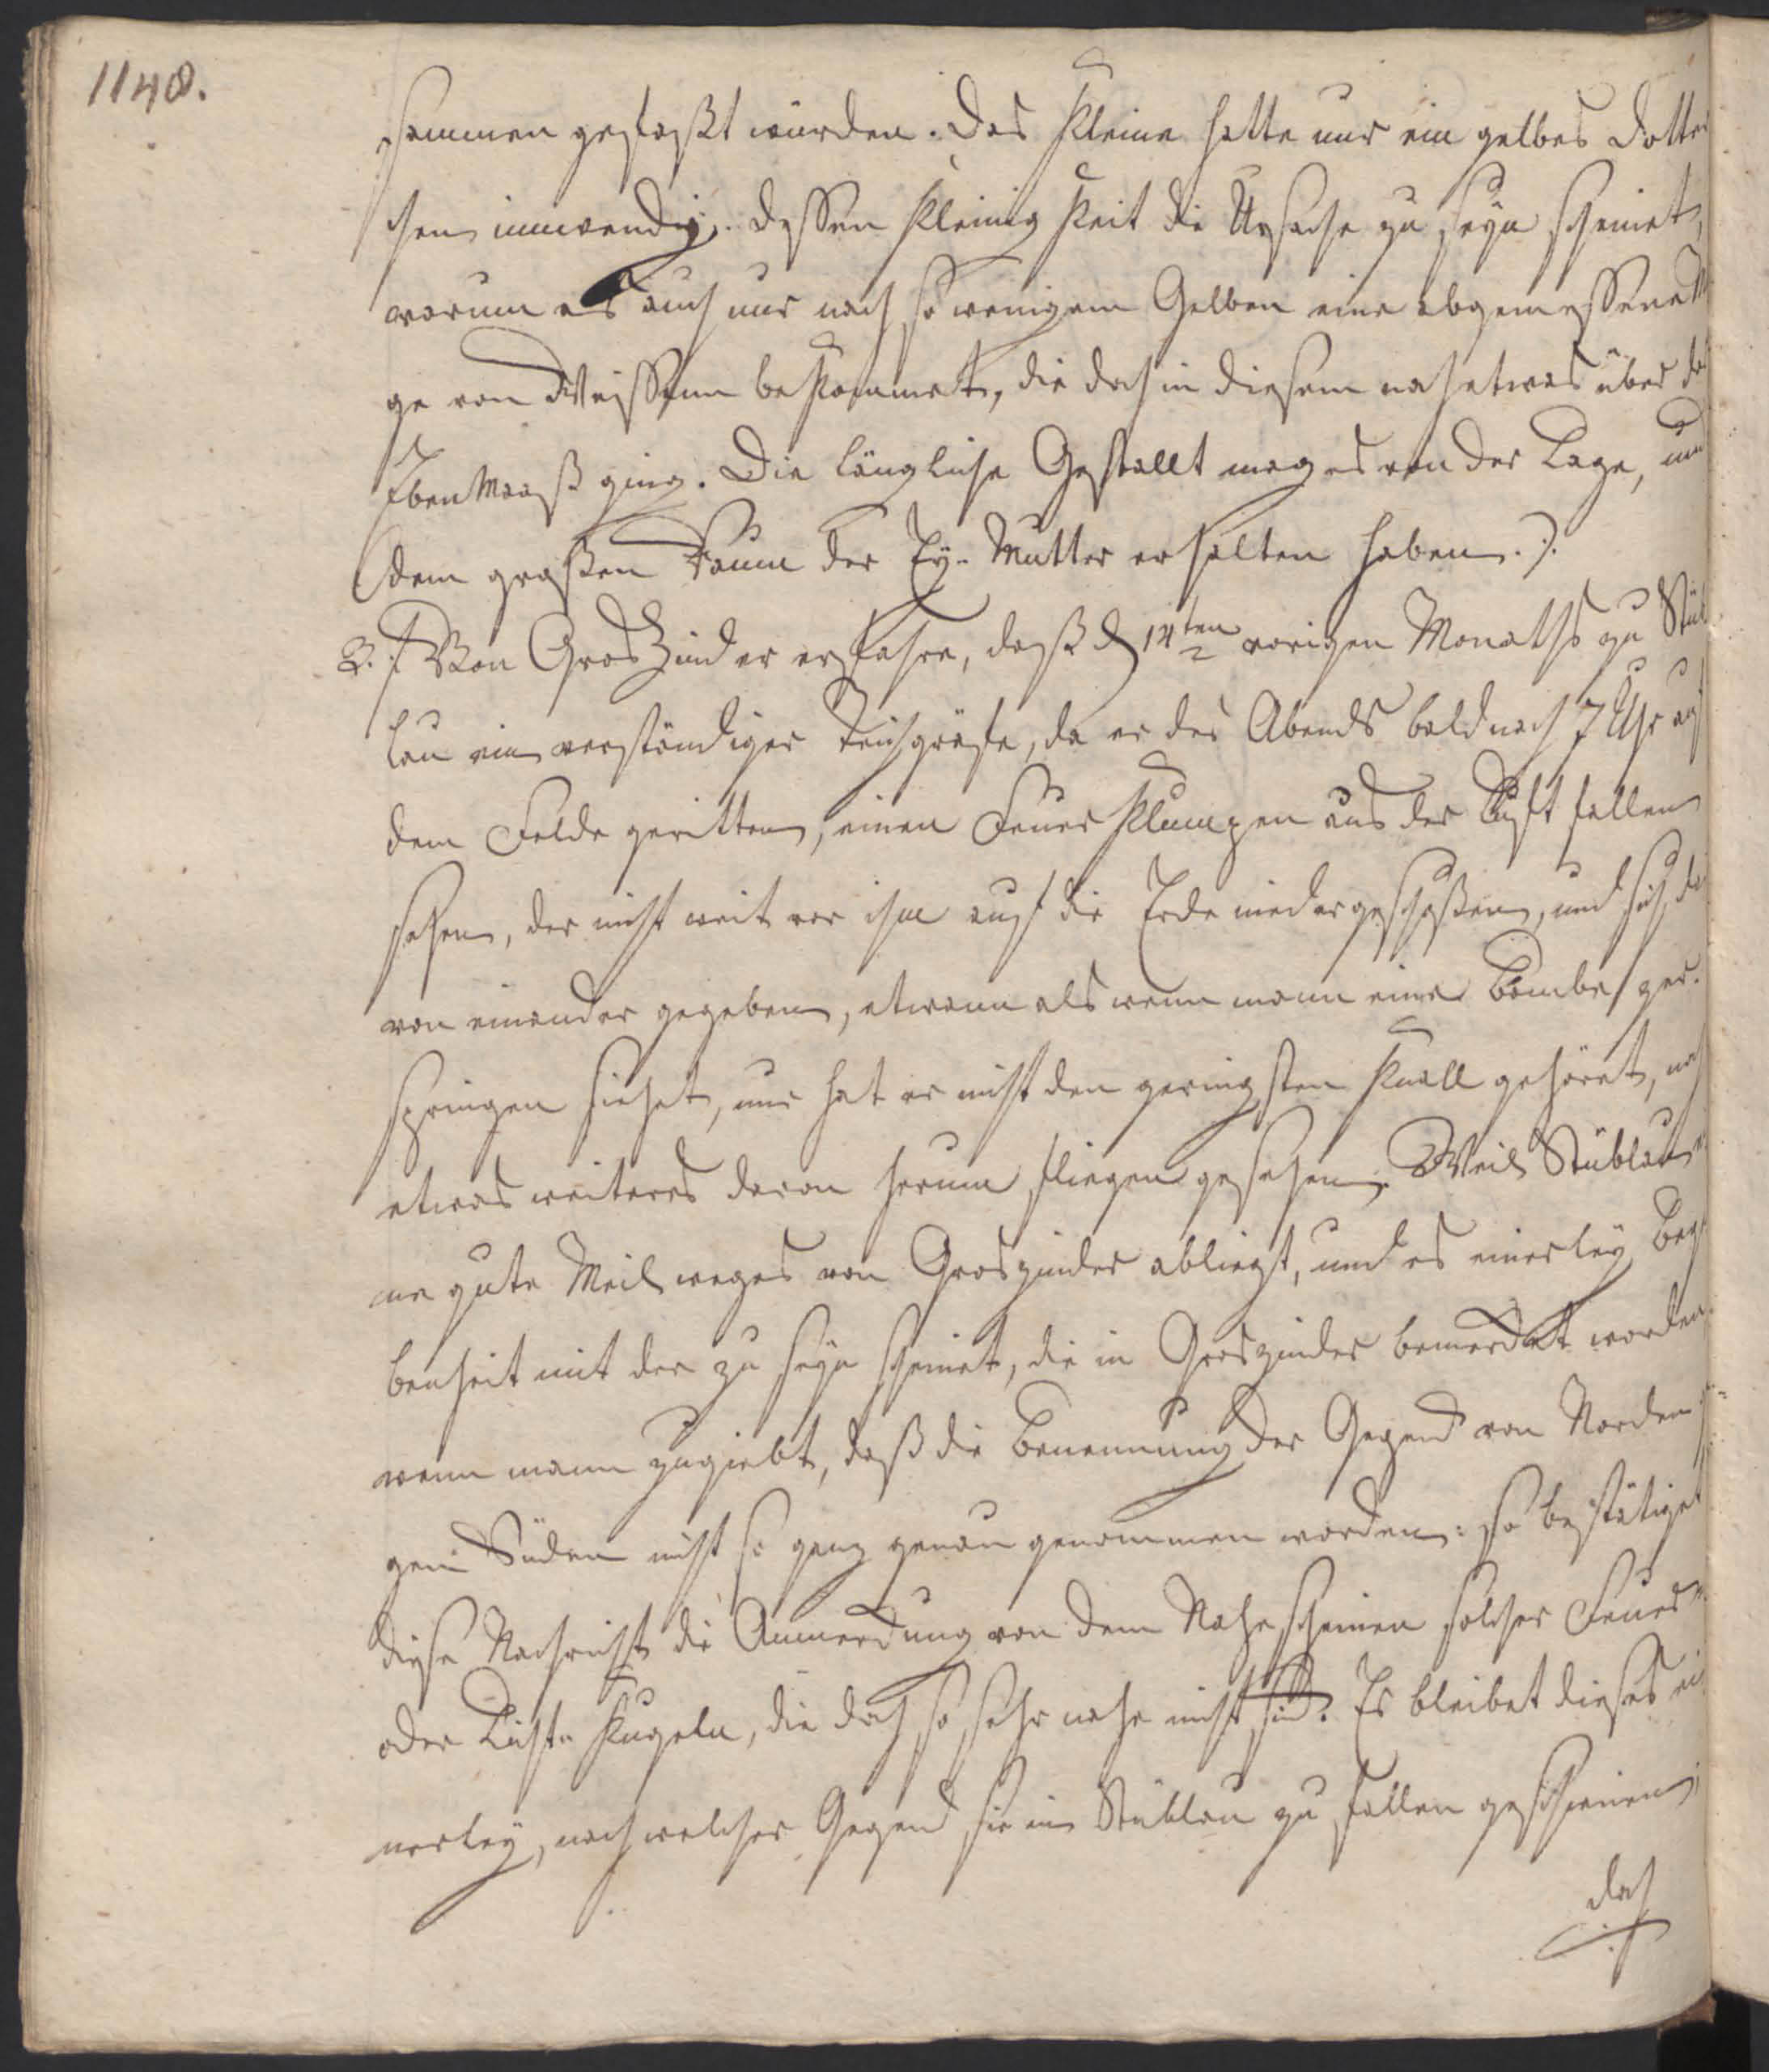 1148.
sammen gefaßt wurden. Das Kleine hatte nur ein gelbes Dotter
chen inwendig. Dessen Kleinigkeit die Ursache zu seyn scheinet,
warum es auch nur nach so wenigem Gelben eine abgemessene M
ge von Weissem bekommet, die doch in diesem noch etwas über das
Eben Maaß ging. Die längliche Gestallt mag es von der Lage, und
dem großen Raum der Ey-Mutter erhalten haben.).
B. Von GrosZünder erfahre, daß d 14ten vorigen Monaths zu Stüb
lau ein verständiger Teichgräfe, da er des Abends bald nach 7 Uhr auf
dem Felde geritten, einen Feuer Klumpen aus der Luft fallen
sehen, der nicht weit vor ihm auf die Erde niedergeschoßen, und sich da
von einander gegeben, etwann als wenn mann eine Bombe zer-
springen siehet, nur hat er nicht den geringsten Knall gehöret, noch
etwas weiteres davon herum fliegen gesehen. Weil Stüblau ei
ne gute Meilweges von Groszünder abliegt, und es einerley Bege
benheit mit der zu seyn scheinet, die in Groszünder bemerckt worden
wenn mann zugiebt, daß die Benennung der Gegend von Norden
gen Süden nicht so ganz genau genommen worden: so bestätiget
diese Nachricht die Anmerckung von dem Nahe scheinen solcher Feuer-
oder Licht-Kugeln, die doch so sehr nahe nicht sind. Es bleibet dieses ei
nerley, nach welcher Gegend sie in Stüblau zu fallen geschienen,
doch